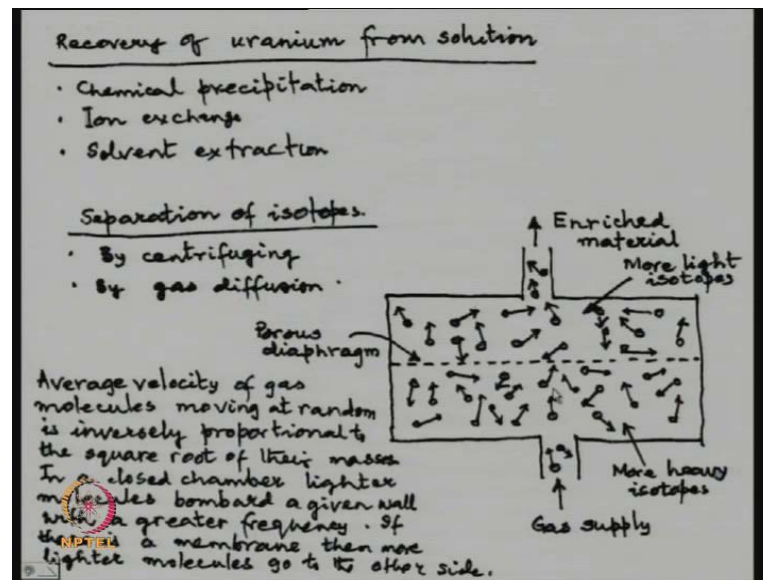 Recovery of uranium from solution
• Chemical precipitation
• Ion exchange
• Solvent extraction
Separation of isotopes.
• By centrifuging
• By gas diffusion.
Enriched
material
More light
isotopes
Porous
diaphragm
More heavy
isotopes
Gas supply
Average velocity of gas
molecules moving at random
is inversely proportional to
the square root of their masses
In a closed chamber lighter
molecules bombard a given wall
with a greater frequency. If
there is a membrane then more
lighter molecules go to the other side.
NPTEL